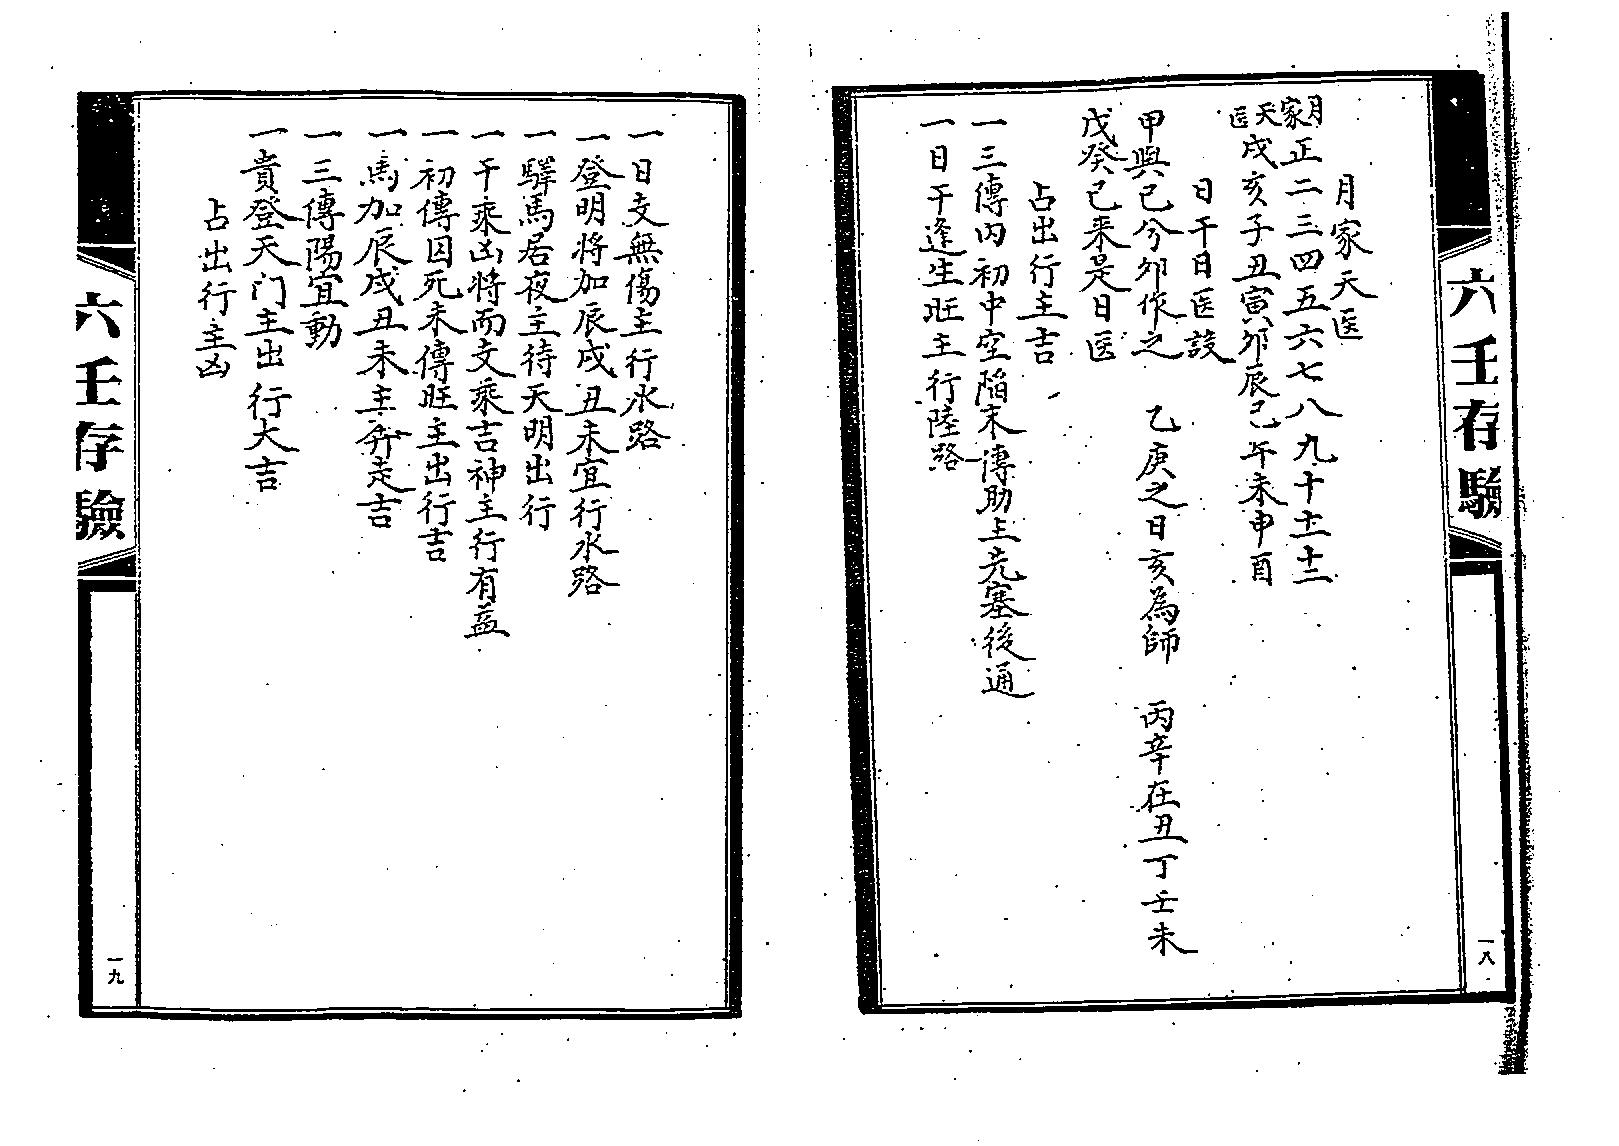 六壬存驗
一八
月家天医
月家 正二三四五六七八九十十一十二
天医 戌亥子丑寅卯辰巳午未申酉
日干日医設
甲與己兮卯作之 乙庚之日亥為師 丙辛在丑丁壬未
戊癸己来是日医
占出行主吉
一三傳内初中空陷末傳助主先塞後通
一日干逢生旺主行陸路
一日支無傷主行水路
一登明将加辰戌丑未宜行水路
一驛馬居夜主待天明出行
一干乘凶将而支乘吉神主行有益
一初傳囚死末傳旺主出行吉
一馬加辰戌丑未主奔走吉
一三傳陽宜動
一貴登天门主出行大吉
占出行主凶
六壬存驗
一九